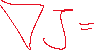 ∇J=